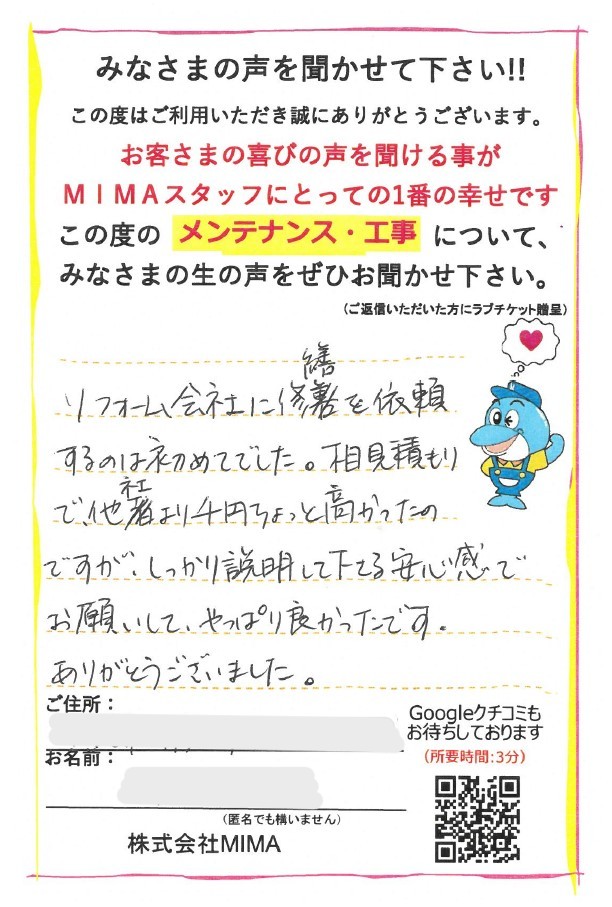 みなさまの声を聞かせて下さい!!
この度はご利用いただき誠にありがとうございます。
お客さまの喜びの声を聞ける事が
MIMAスタッフにとっての1番の幸せです
この度の メンテナンス・工事 について、
みなさまの生の声をぜひお聞かせ下さい。
(ご返信いただいた方にラブチケット贈呈)
リフォーム会社に修繕を依頼
するのは初めてでした。相見積もり
で、他社より千円ちょっと高かったの
ですが、しっかり説明して下さる安心感で
お願いして、やっぱり良かったです。
ありがとうございました。
ご住所:
Googleクチコミも
お待ちしております
(所要時間:3分)
お名前:
(匿名でも構いません)
株式会社MIMA